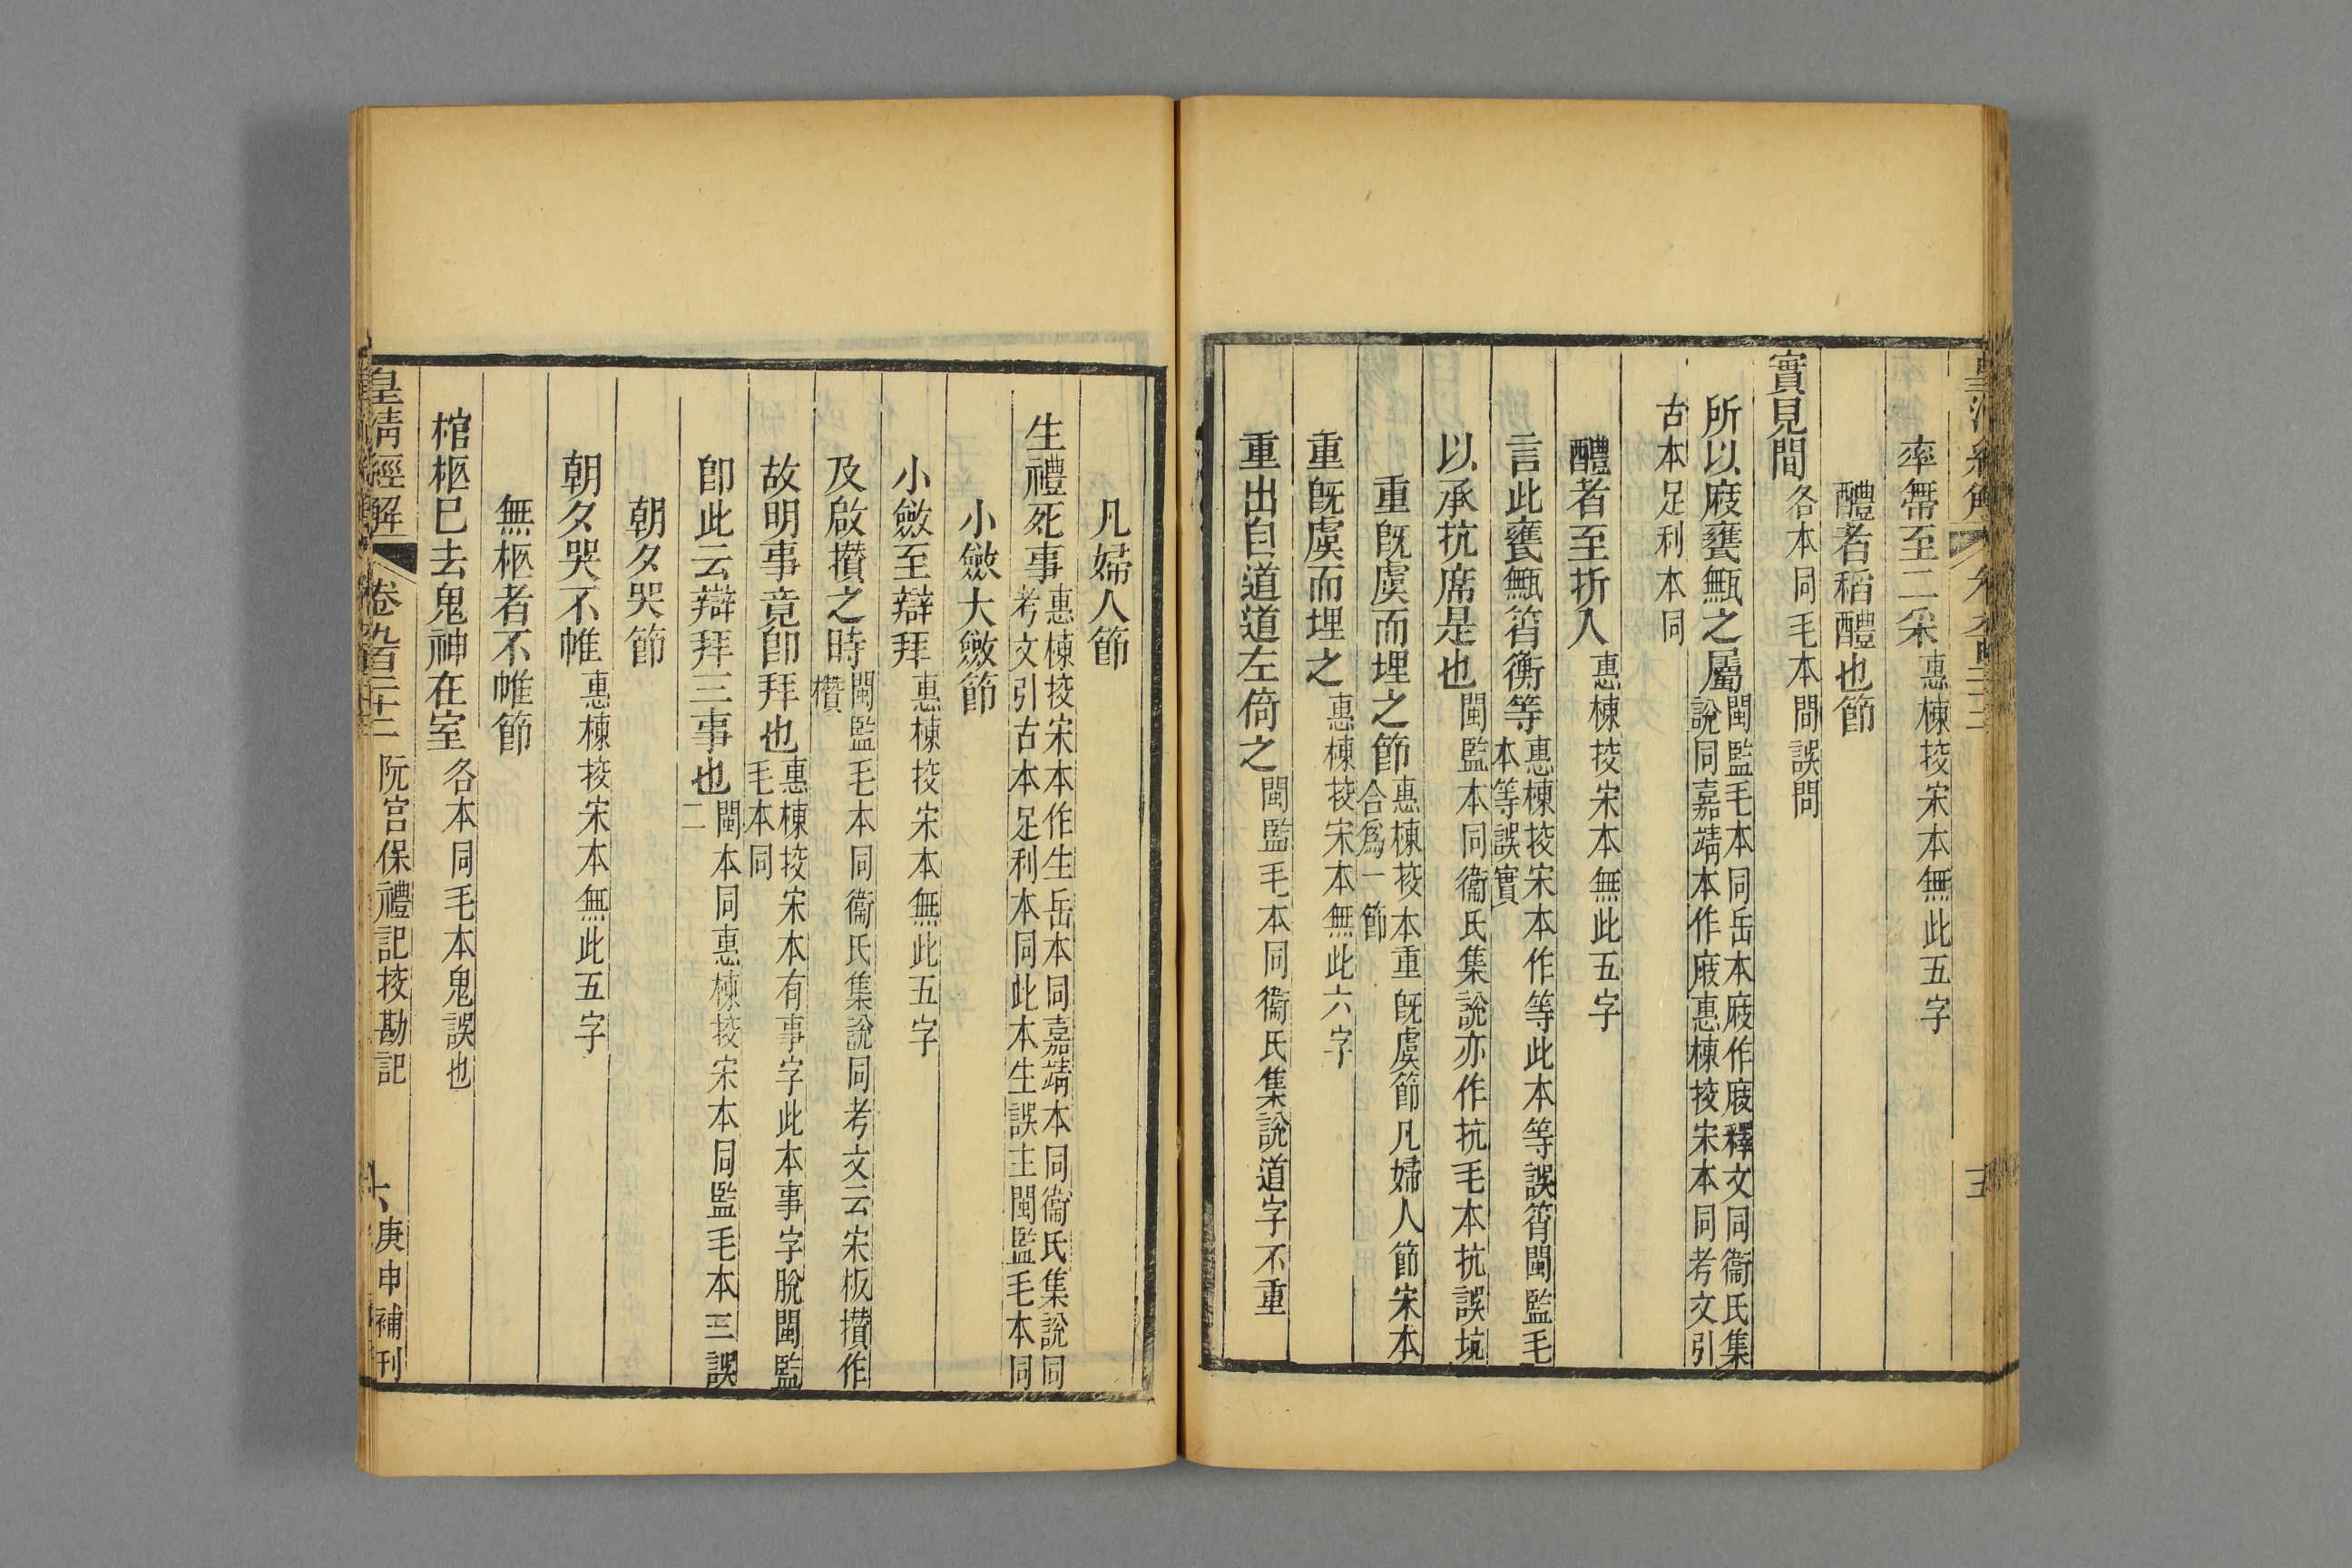 率幣至二采惠棟挍宋本無此五字
醴者稻醴也節
實見間各本同毛本間誤問
所以庪甕甒之屬閩監毛本同岳本庪作庪釋文同衞氏集
說同嘉靖本作庪惠棟挍宋本同考文引
古本足利本同
醴者至折入惠棟挍宋本無此五字
言此甕甒筲衡等惠棟挍宋本作等此本等誤筲閩監毛
本等誤實
以承抗席是也閩監本同衞氏集說亦作抗毛本抗誤坑
重旣虞而埋之節惠棟挍本重旣虞節凡婦人節宋本
合爲一節
重旣虞而埋之惠棟挍宋本無此六字
重出自道道左倚之閩監毛本同衞氏集說道字不重
凡婦人節
生禮死事惠棟挍宋本作生岳本同嘉靖本同衞氏集說同
考文引古本足利本同此本生誤主閩監毛本同
小斂大斂節
小斂至辯拜惠棟挍宋本無此五字
及啟攢之時閩監毛本同衞氏集說同考文云宋板攢作
欑
故明事竟卽拜也惠棟挍宋本有事字此本事字脫閩監
毛本同
卽此云辯拜三事也閩本同惠棟挍宋本同監毛本三誤
二
朝夕哭節
朝夕哭不帷惠棟挍宋本無此五字
無柩者不帷節
棺柩已去鬼神在室各本同毛本鬼誤也
皇淸經解 卷九百三十二 阮宮保禮記挍勘記 六 庚申補刊